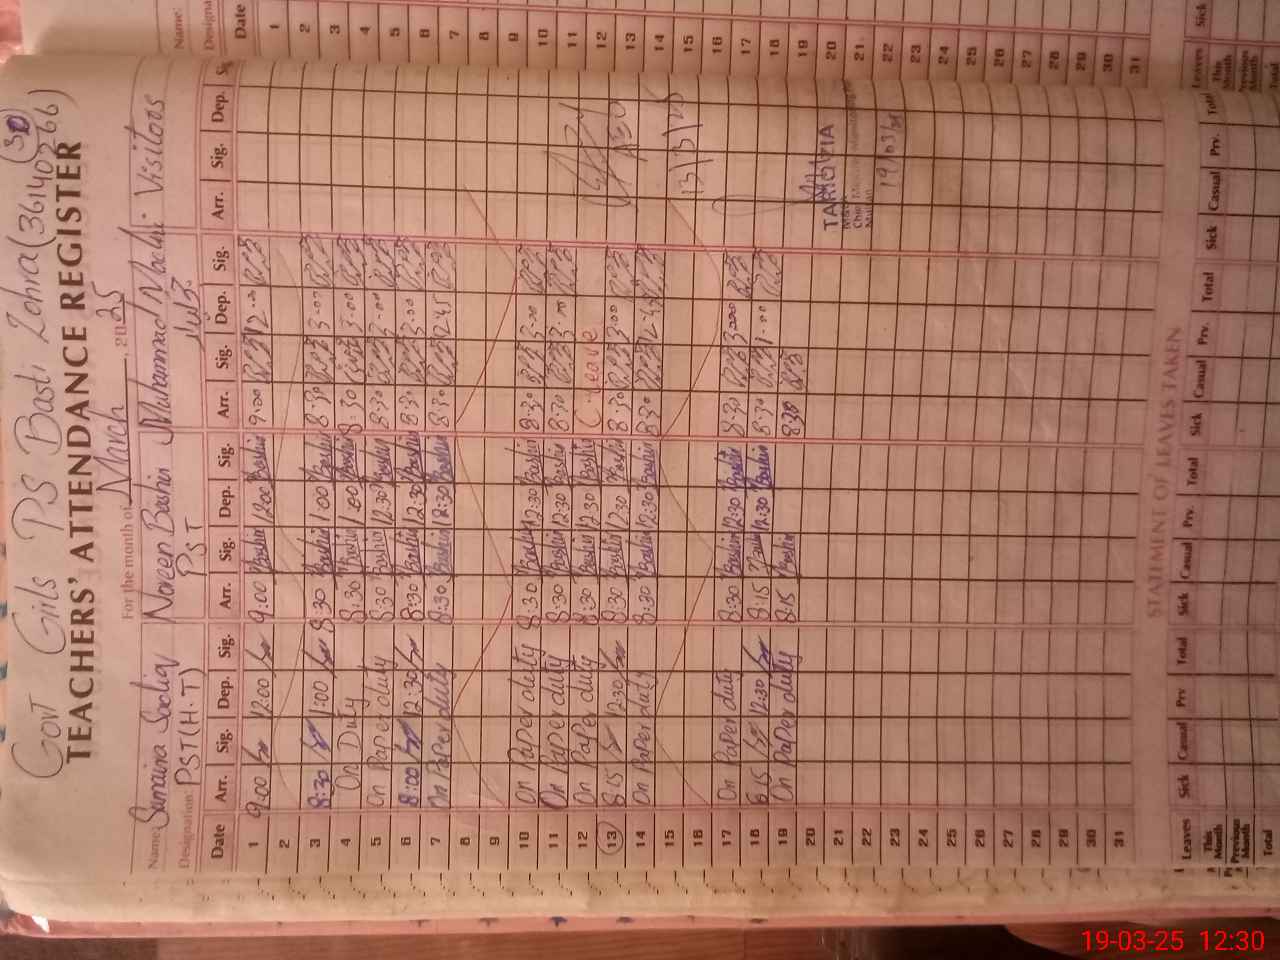 Govt Girls PS Basti Zohra (36140266) (30)
TEACHERS' ATTENDANCE REGISTER
For the month of March, 2025
Name: Sumaira Sadiq Noreen Bashir Muhammad Visitors
Designation: PST (H.T) PST
Date Arr. Sig. Dep. Sig. Arr. Sig. Dep. Sig. Arr. Sig. Dep. Sig. Arr. Sig. Dep.
1 9:00 12:00 9:00 Bashir 12:00 Bashir 9:00 12:00
2
3 8:30 1:00 8:30 Bashir 1:00 Bashir 8:30 3:00
4 On Duty 8:30 Bashir 1:00 Bashir 8:30 3:00
5 On Paper duty 8:30 Bashir 12:30 Bashir 8:30 3:00
6 8:00 12:30 8:30 Bashir 12:30 Bashir 8:30 3:00
7 On Paper duty 8:30 Bashir 12:30 Bashir 8:30 12:45
8
9
10 On Paper duty 8:30 Bashir 12:30 Bashir 8:30 3:00
11 On Paper duty 8:30 Bashir 12:30 Bashir 8:30 3:00
12 On Paper duty 8:30 Bashir 12:30 Bashir C. Leave
13 8:15 12:30 8:30 Bashir 12:30 Bashir 8:30 3:00
14 On Paper duty 8:30 Bashir 12:30 Bashir 8:30 12:45
15 13/3/25
16
17 On Paper duty 8:30 Bashir 12:30 Bashir 8:30 3:00
18 8:15 12:30 8:15 Bashir 12:30 Bashir 8:30 1:00
19 On Paper duty 8:15 Bashir 8:30
20
21
22 19/03/25
23
24
25
26
27
28
29
30
31
STATEMENT OF LEAVES TAKEN
Leaves Sick Casual Prv Total Sick Casual Prv. Total Sick Casual Prv. Total Sick Casual Prv. Total
This Month
Previous Month
Total
Name:
Date
1
2
3
4
5
6
7
8
9
10
11
12
13
14
15
16
17
18
19
20
21
22
23
24
25
26
27
28
29
30
31
Leaves Sick
This Month
Previous Month
Total
19-03-25 12:30